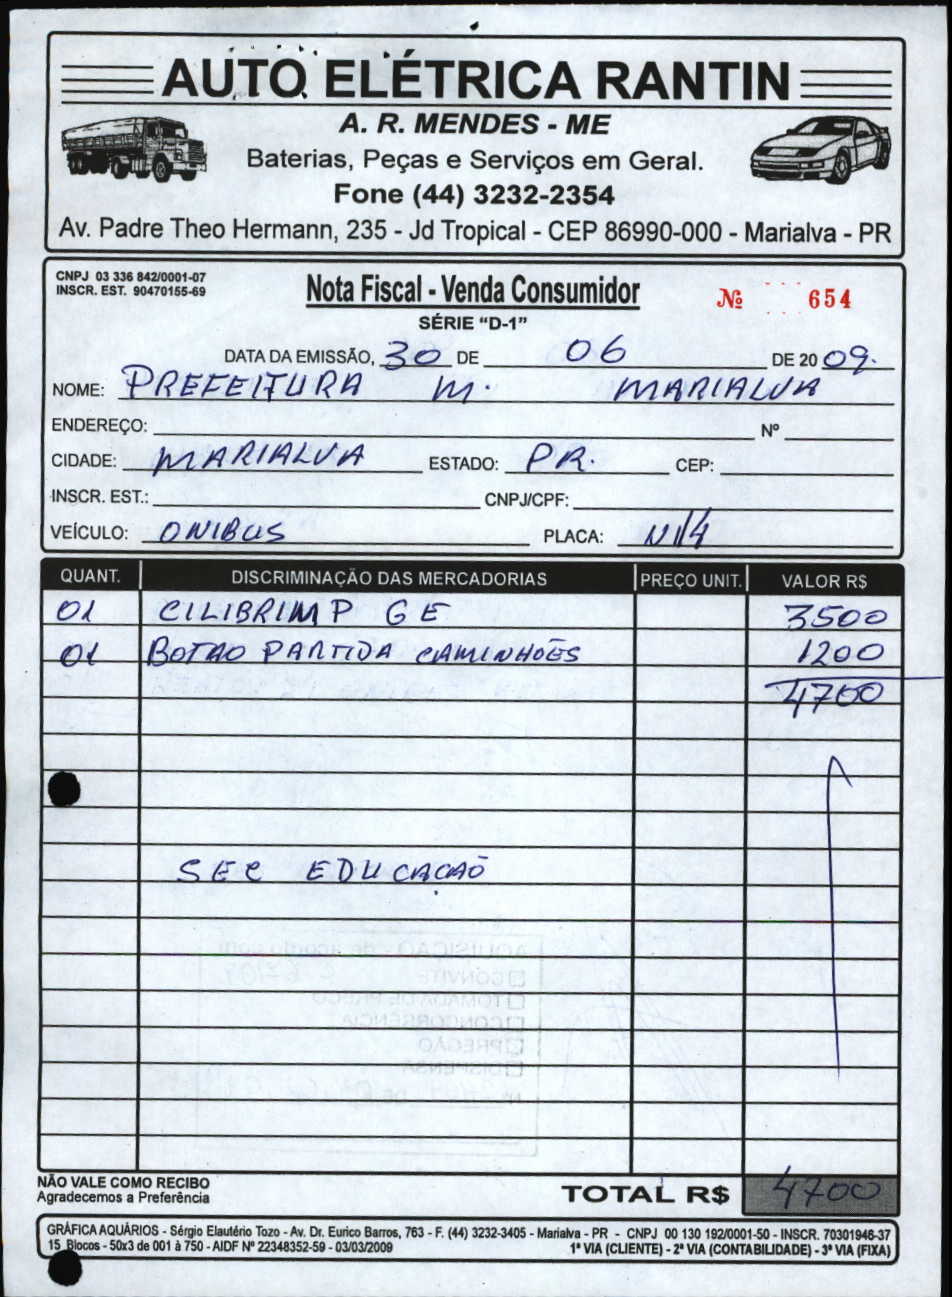 AUTO ELÉTRICA RANTIN
A. R. MENDES - ME
Baterias, Peças e Serviços em Geral.
Fone (44) 3232-2354
Av. Padre Theo Hermann, 235 - Jd Tropical - CEP 86990-000 - Marialva - PR
CNPJ 03 336 842/0001-07
INSCR. EST. 90470155-69
Nota Fiscal - Venda Consumidor
Nº 654
SÉRIE "D-1"
DATA DA EMISSÃO, 30 DE 06 DE 2009.
NOME: PREFEITURA M. MARIALVA
ENDEREÇO: Nº
CIDADE: MARIALVA ESTADO: PR. CEP:
INSCR. EST.: CNPJ/CPF:
VEÍCULO: ONIBUS PLACA:
QUANT. DISCRIMINAÇÃO DAS MERCADORIAS PREÇO UNIT. VALOR R$
01 CILIBRIMP GE 3500
01 BOTAO PARTIDA CAMINHÕES 1200
4700
SEC EDUCAÇÃO
AQUISIÇÃO - de acordo com
CONVITE
TOMADA DE PREÇO
CONCORRÊNCIA
PREGÃO
DISPENSA
NÃO VALE COMO RECIBO
Agradecemos a Preferência
TOTAL R$ 4700
GRÁFICA AQUÁRIOS - Sérgio Elautério Tozo - Av. Dr. Eurico Barros, 763 - F. (44) 3232-3405 - Marialva - PR - CNPJ 00 130 192/0001-50 - INSCR. 70301946-37
15 Blocos - 50x3 de 001 à 750 - AIDF Nº 22348352-59 - 03/03/2009
1ª VIA (CLIENTE) - 2ª VIA (CONTABILIDADE) - 3ª VIA (FIXA)